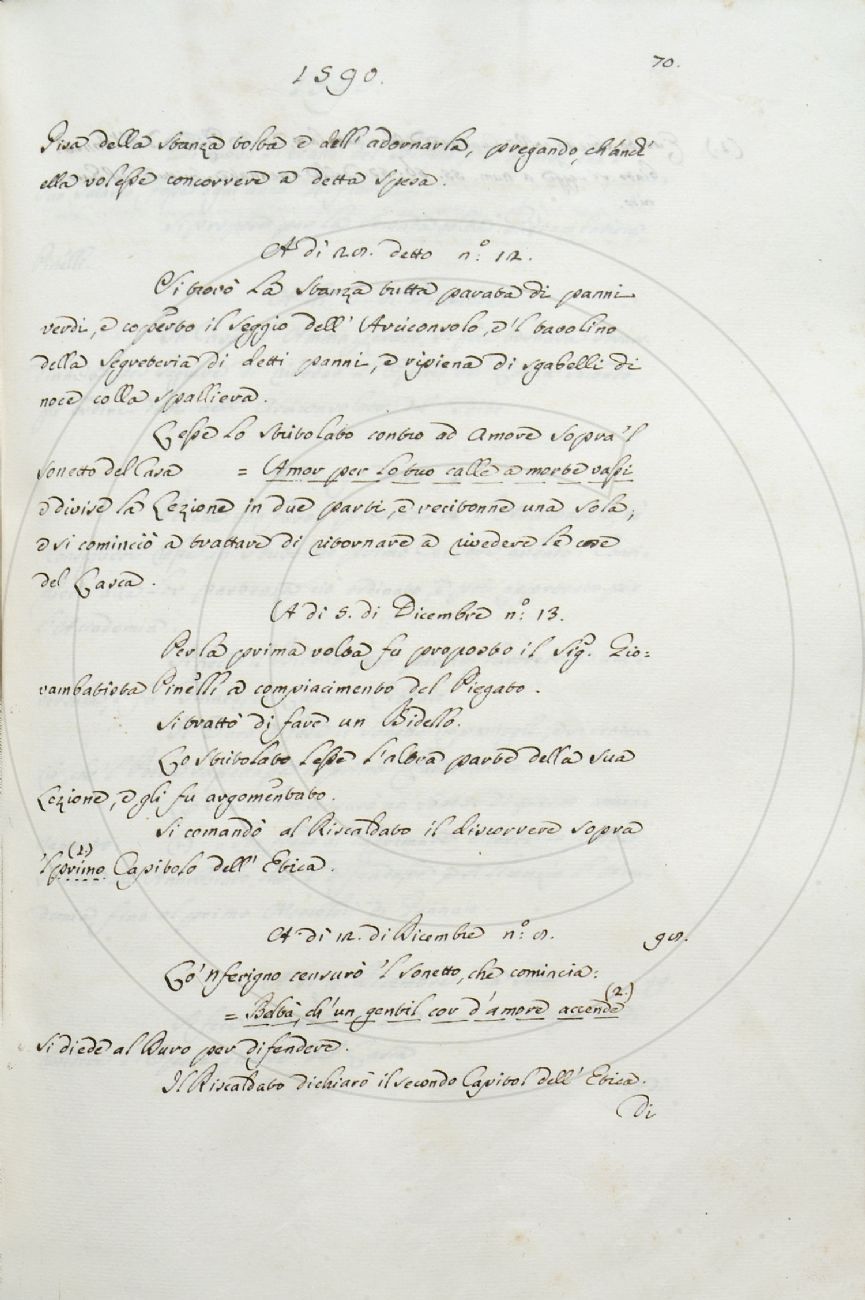 1590.
70.
Pisa della stanza tolta e dell' adornarla, pregando, ch'anch'
ella volesse concorrere a detta spesa.
A dì 28. detto n.° 12.
Si trovò la stanza tutta parata di panni
verdi, e coperto il seggio dell' Arciconsolo, e 'l tavolino
della segreteria di detti panni, e ripiena di sgabelli di
noce colla spalliera.
Lesse lo stritolato contro ad Amore sopra 'l
sonetto del Casa = Amor per lo tuo calle a morte vassi
e divise la Lezione in due parti, e recitonne una sola;
e si cominciò a trattare di ritornare a rivedere le cose
del Lasca.
A dì 5. di Dicembre n.° 13.
Per la prima volta fu proposto il Sig.r Gio=
vambatista Pinelli a compiacimento del Piegato.
Si trattò di fare un Bidello.
Lo stritolato lesse l'altra parte della sua
Lezione, e gli fu argomentato.
Si comandò al Riscaldato il discorrere sopra
'l primo (1.) Capitolo dell' Etica.
A dì 12. di Dicembre n.° 8.
98.
Lo 'nferigno censurò 'l sonetto, che comincia:
= Beltà, ch'un gentil cor d'amore accende (2.)
si diede al Duro per difendere.
Il Riscaldato dichiarò il secondo Capitol dell' Etica.
Di